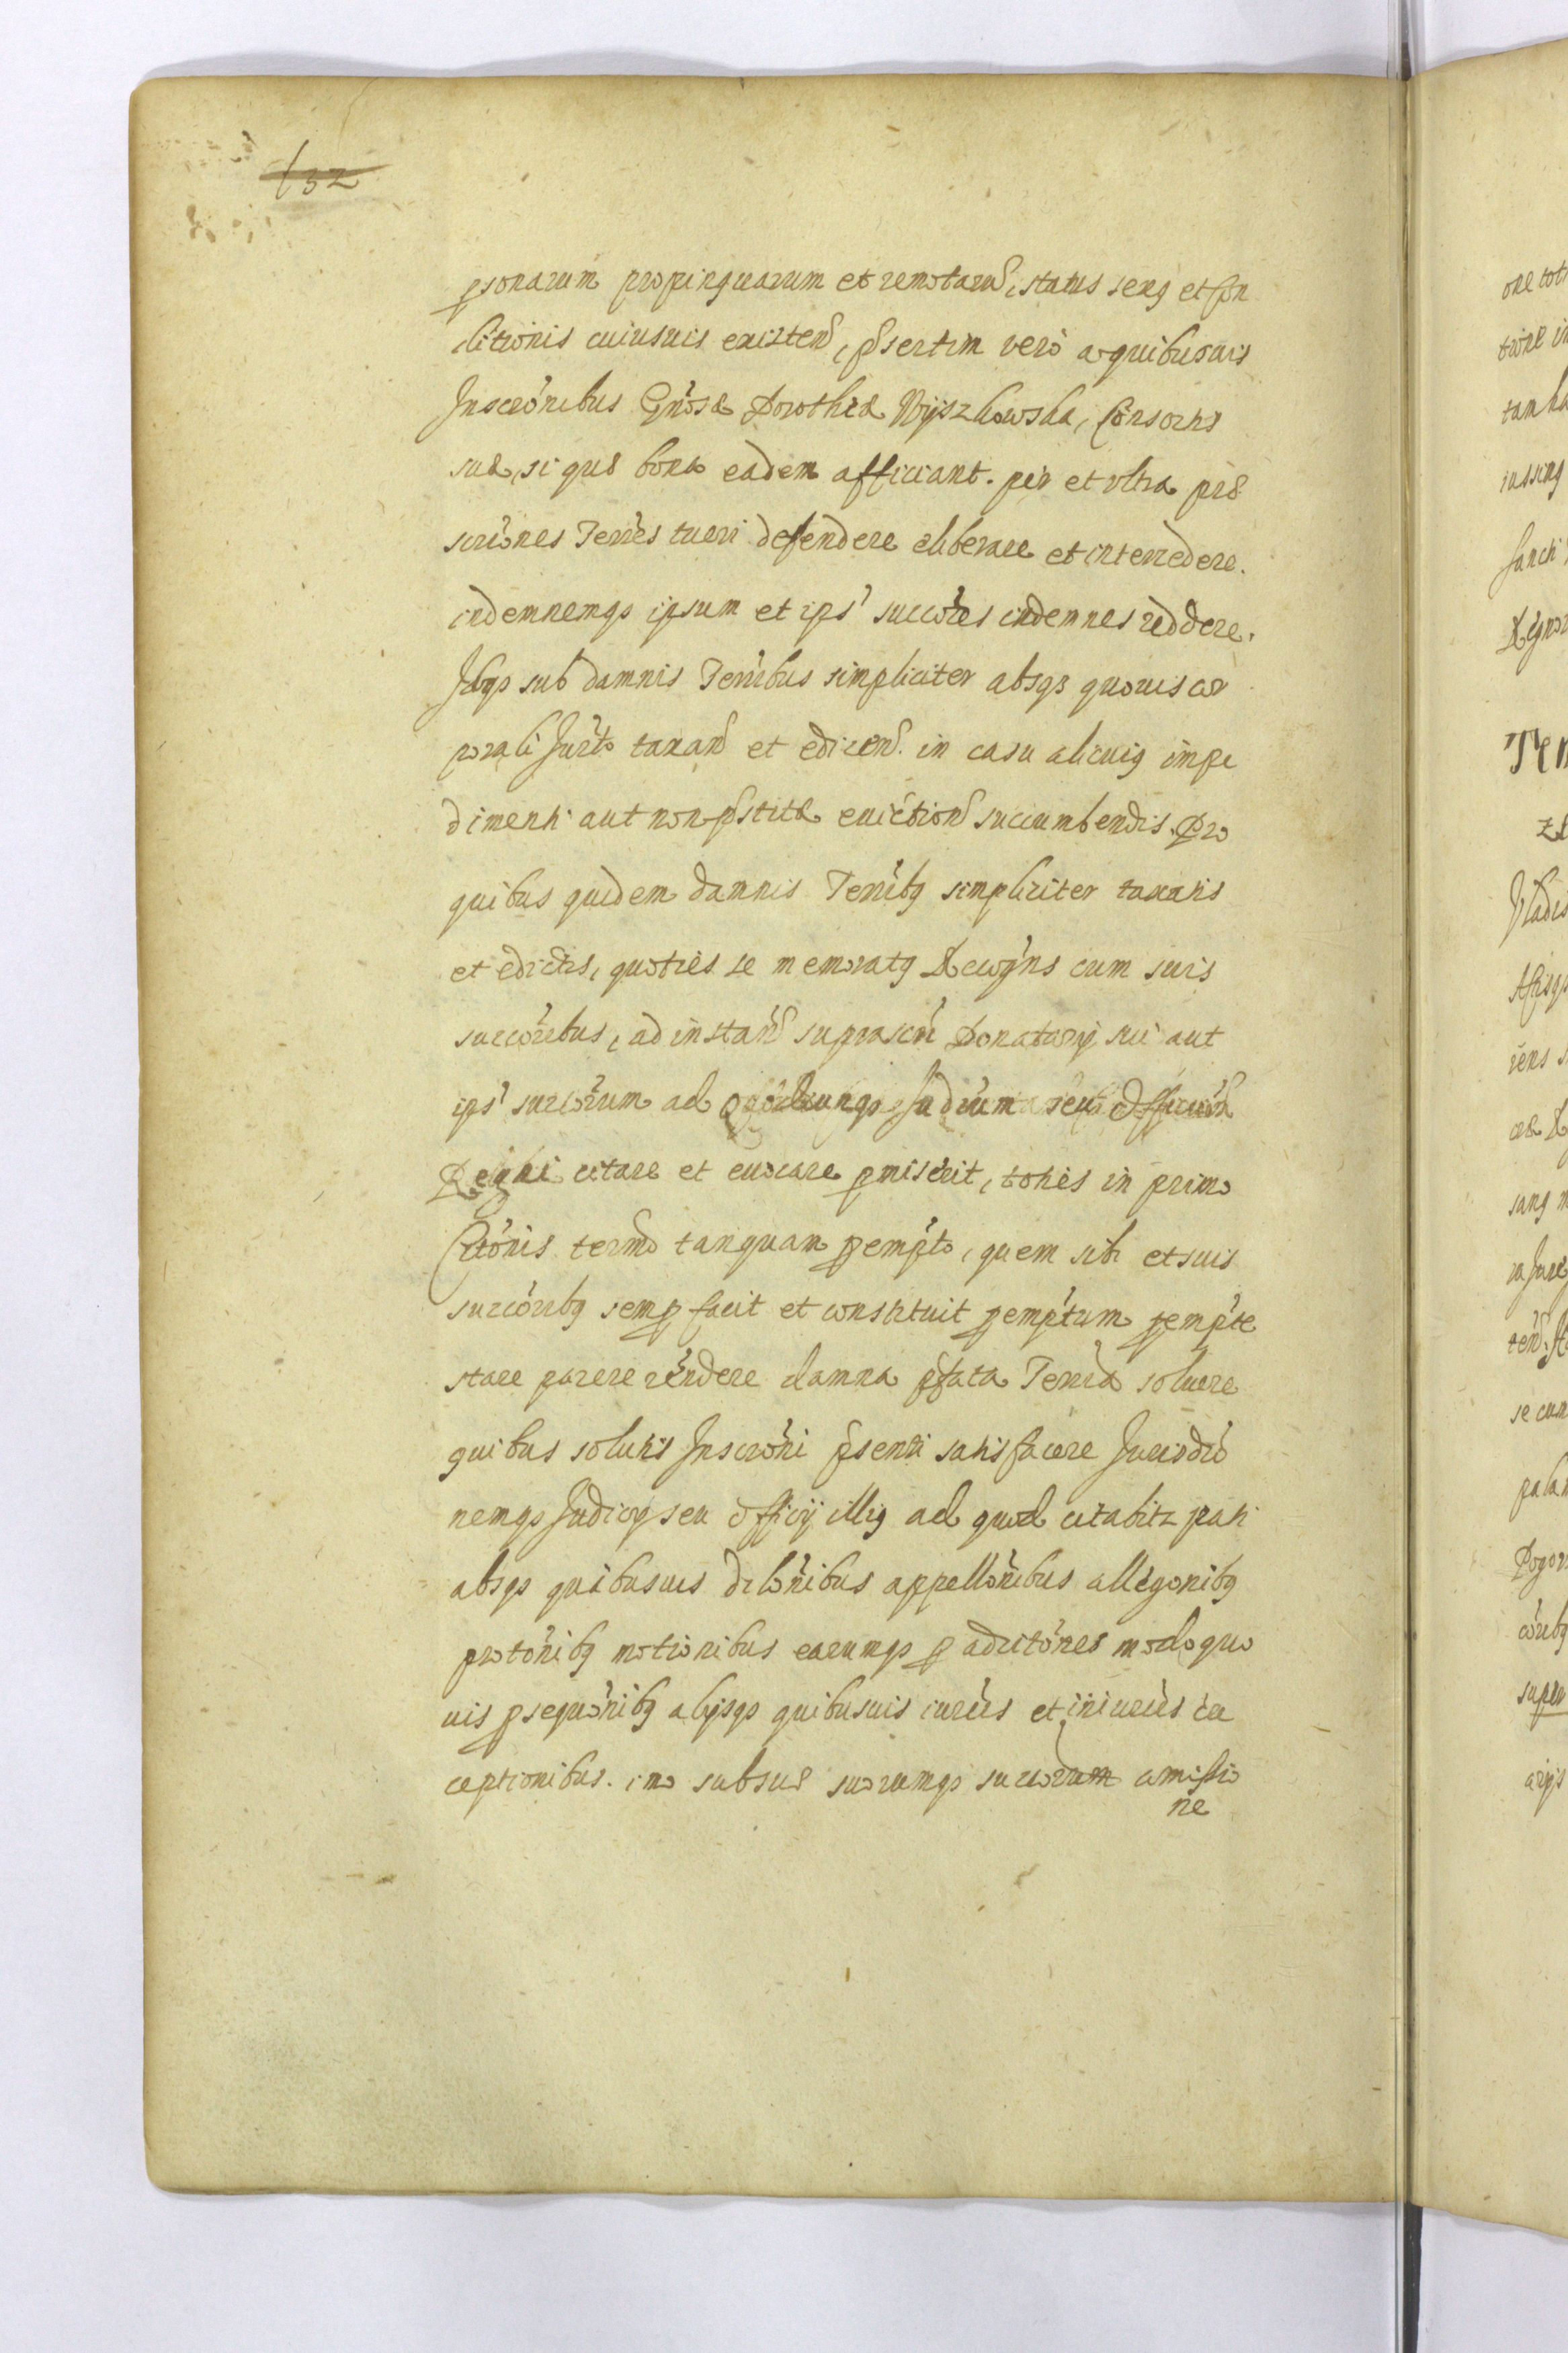 132
psonarum propinquarum et remotarum, status sexus et con
ditionis cuiusuis existen, psertim vero a quibusuis
Inscrōnibus Gnosæ Dorotheæ Wyszkowska, Consortis
suæ, si quæ bona eadem afficiant. per et vltra præ
scriōnes Terres tueri defendere eliberare et intercedere.
indemnemqȝ ipsum et ips' succōres indemnes reddere.
Idqȝ sub damnis Terribus simpliciter absqȝ quouis cor
porali Iurto taxan et edicen. in casu alicuiꝰ impe
dimenti aut non pstitæ euiction succumbendis. Pro
quibus quidem damnis Terribꝰ simpliciter taxatis
et edictis, quoties se memoratꝰ Recogns cum suis
succōribus, ad instan suprascri Donatarij sui aut
ips' succōrum ad quodcunqȝ Iudicium seu Officium
Regni citare et euocare pmiserit, toties in primo
Citōnis termo tanquam pempto, quem sibi et suis
succōribꝰ semp facit et constituit pemptum pempte
stare parere rendere damna pfata Terria soluere
quibus solutis Inscrōni psenti satisfacere Iurisdic
nemqȝ Iudicij seu officij illiꝰ ad quod citabitr pati
absqȝ quibusuis dilōnibus appellōnibus allegonibꝰ
protōnibꝰ motionibus earumqȝ p aditōnes modo quo
uis psequōnibꝰ alijsqȝ quibusuis iuris et iniuriis ex
ceptionibus. imo sub suæ suorumqȝ succorum amissio
ne